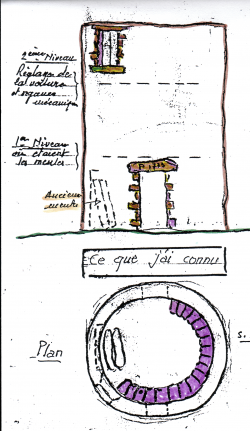 2ème Niveau
Réglages de
la voilure
et organes
mécaniques
1er Niveau
où étaient
les meules
Ancienne
meule
Ce que j'ai connu
Plan
S.